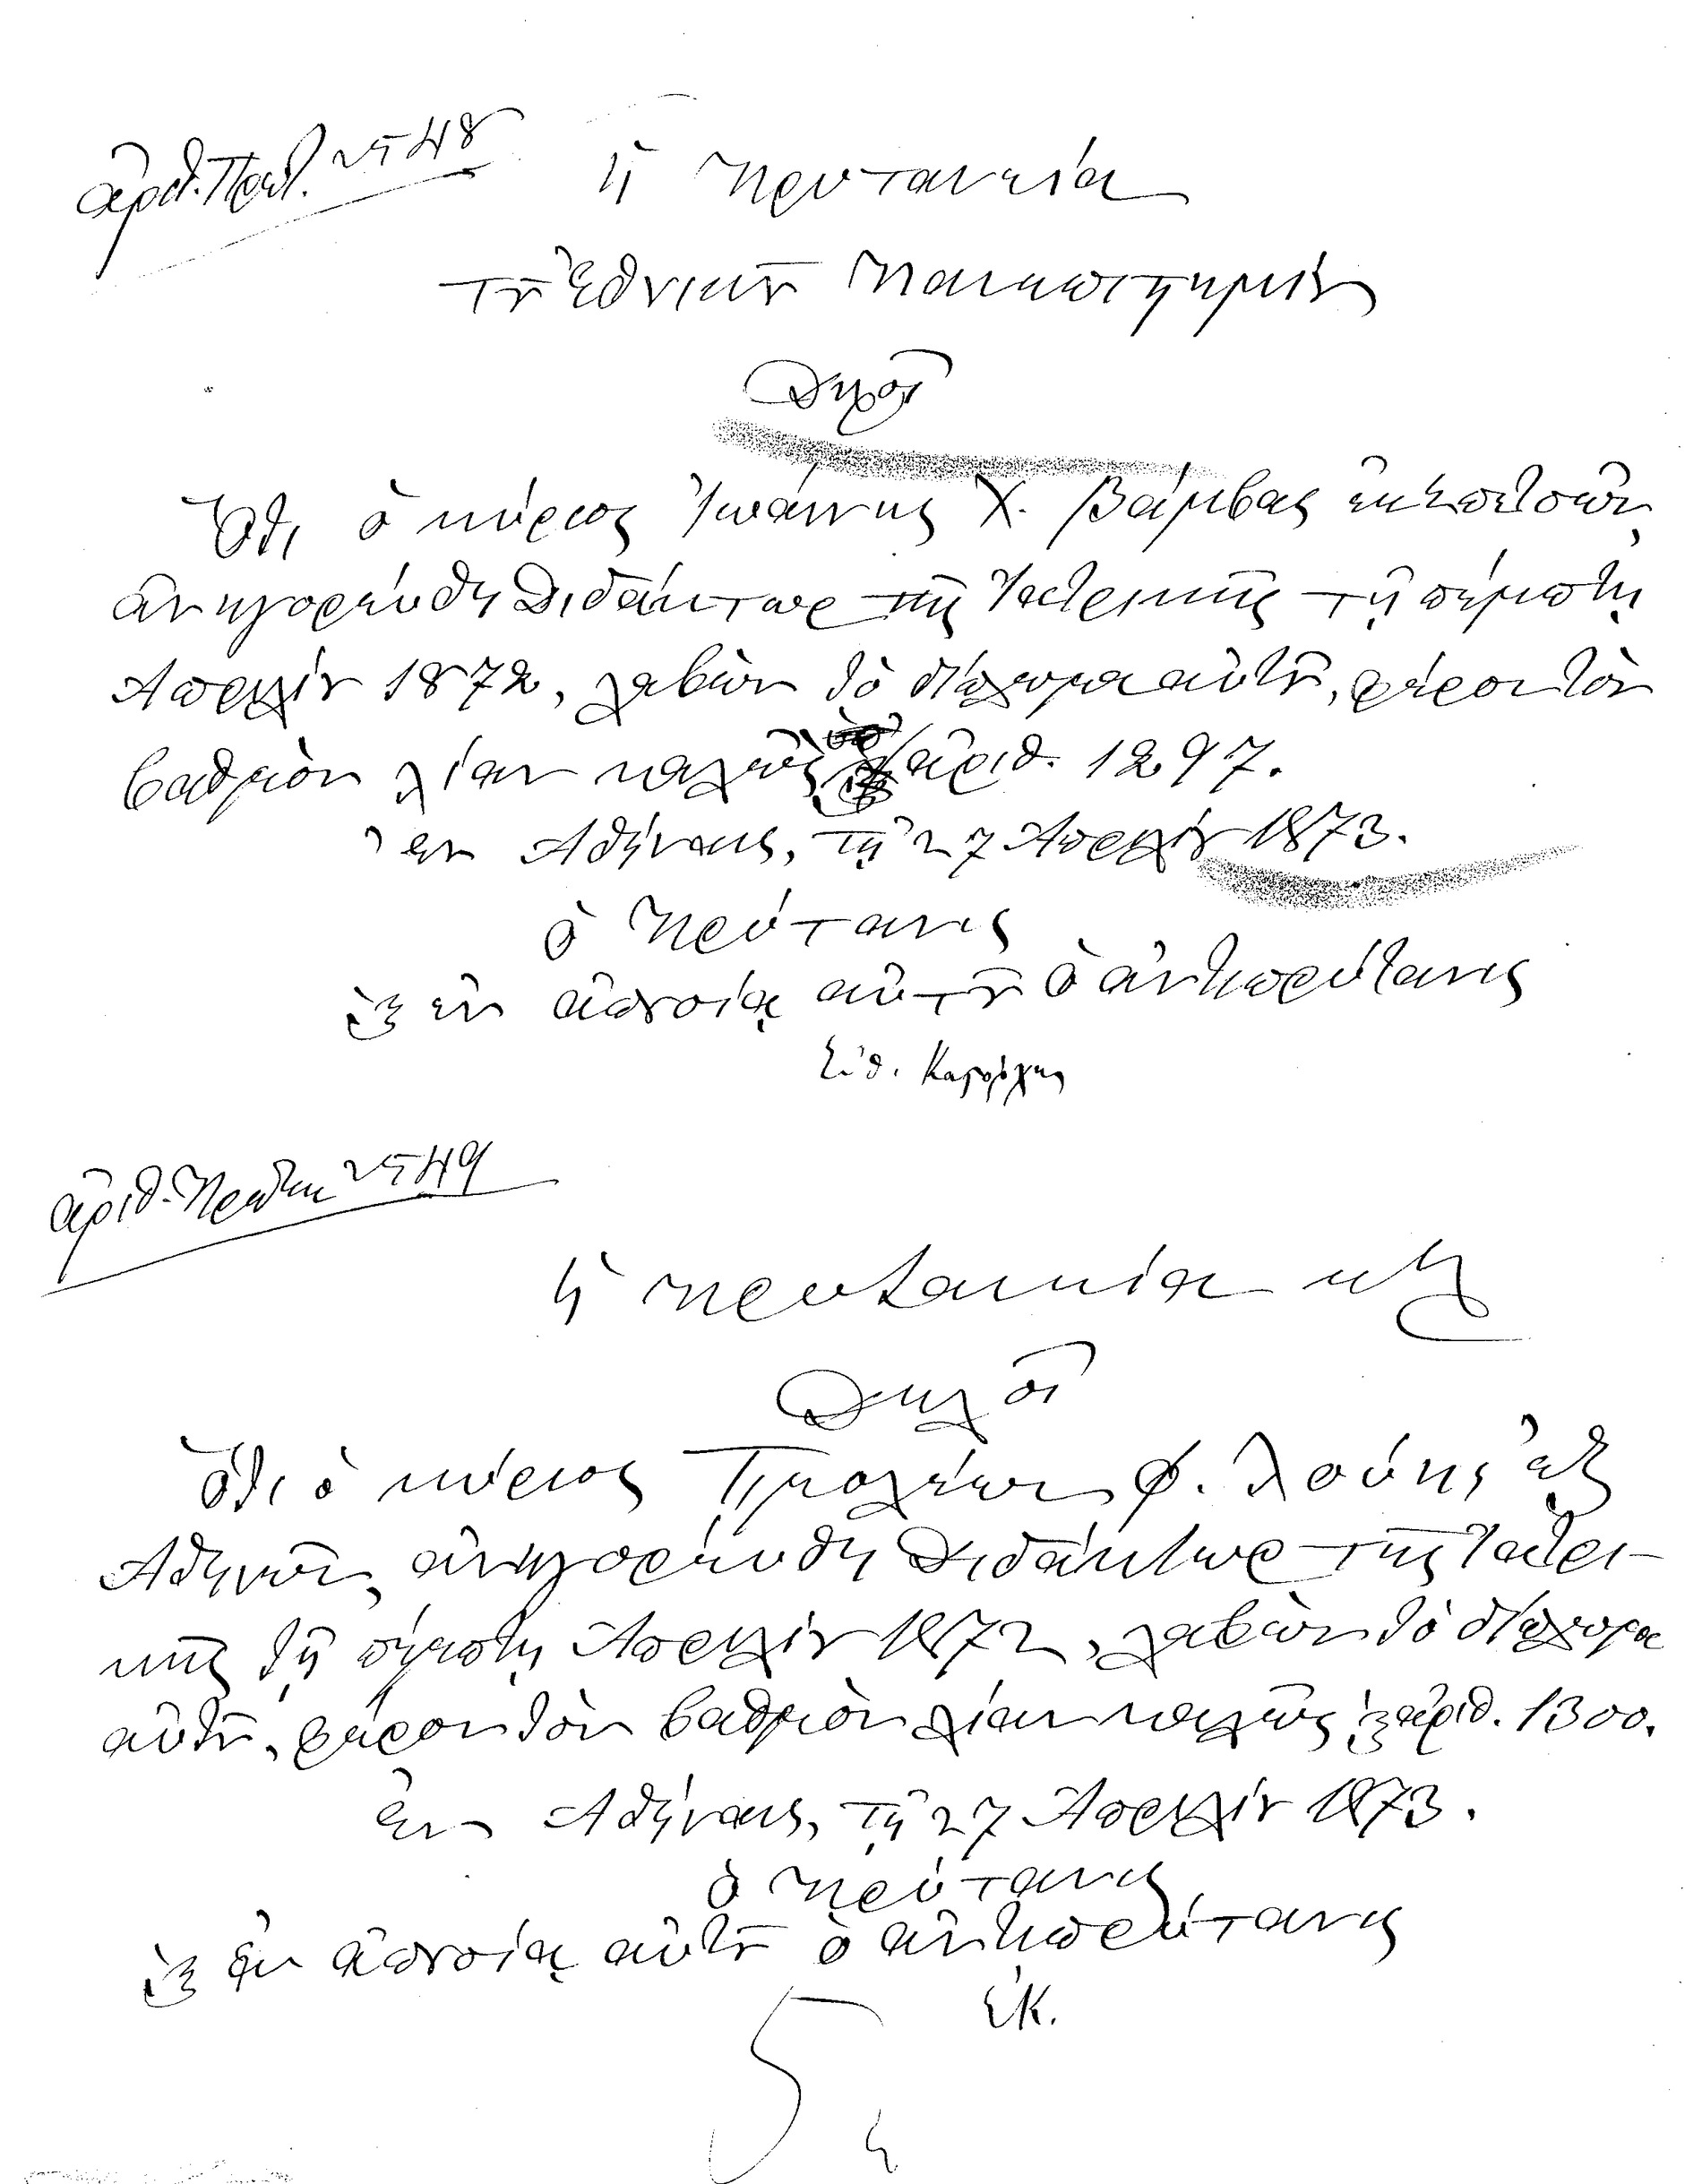 ἀριθ. Πρωτ. 2548
ἡ Πρυτανεία
τοῦ Ἐθνικοῦ Πανεπιστημίου
Δηλοῖ
Ὅτι ὁ κύριος Ἰωάννης Χ. Βάμβας ἐκ Σπετσῶν,
ἀνηγορεύθη Διδάκτωρ τῆς Ἰατρικῆς τῇ πέμπτῃ
Ἀπριλίου 1872, λαβὼν τὸ δίπλωμα αὐτοῦ, φέρον τὸν
βαθμὸν λίαν καλῶς ὑπ' ἀριθ. 1297.
ἐν Ἀθήναις, τῇ 27 Ἀπριλίου 1873.
ὁ Πρύτανις
καὶ ἐν ἀπουσίᾳ αὐτοῦ ὁ ἀντιπρύτανις
Εὐθ. Καστόρχης
ἀριθ. Πρωτοκ 2549
ἡ Πρυτανεία κτλ
Δηλοῖ
ὅτι ὁ κύριος Τιμολέων Φ. Λούης ἐξ
Ἀθηνῶν, ἀνηγορεύθη Διδάκτωρ τῆς Ἰατρι-
κῆς τῇ πέμπτῃ Ἀπριλίου 1872, λαβὼν τὸ δίπλωμα
αὐτοῦ, φέρον τὸν βαθμὸν λίαν καλῶς καὶ ἀριθ. 1300.
ἐν Ἀθήναις, τῇ 27 Ἀπριλίου 1873.
ὁ Πρύτανις
καὶ ἐν ἀπουσίᾳ αὐτοῦ ὁ ἀντιπρύτανις
Ε.Κ.